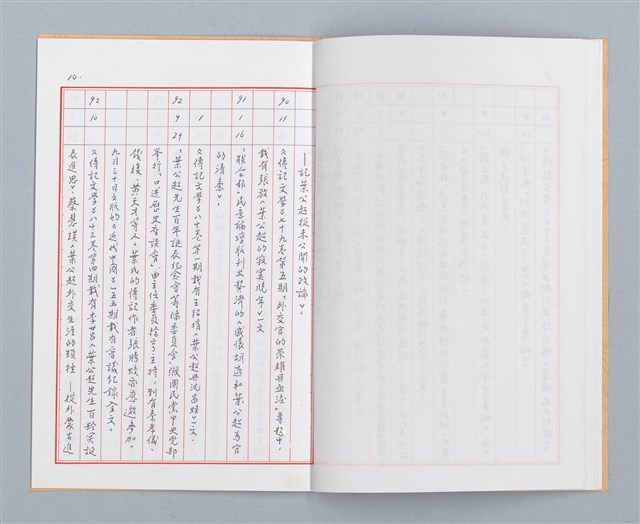 10.
——記葉公超從未公開的政論〉。
90 11
《傳記文學》七十九卷第五期,「外交官的榮耀與血淚」專題中,
載有張放〈葉公超的寂寞晚年〉一文
91 1 16
「聯合報」民意論壇版刊出勢濟的〈感懷胡適和葉公超為官
的清秉〉。
1
《傳記文學》八十卷第一期載有王紹堉〈葉公超與沈昌煥〉一文。
92 9 29
「葉公超先生百年誕辰紀念會籌備委員會」假國民黨中央黨部
舉行「口述歷史座談會」,由主任委員 主持,列有秦孝儀、
錢復、黃天才等人。葉氏的傳記作者張騰蛟亦應邀參加。
九月三十日出版的《近代中國》一五五期載有會議紀錄全文。
92 10
《傳記文學》八十三卷第四期,載有李 〈葉公超先生百齡冥誕
長進思〉、蔡慧瑛〈葉公超外交生涯的頓挫——從外蒙古進